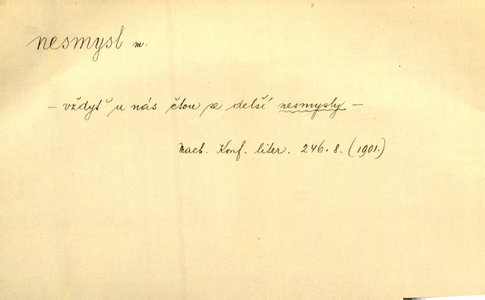 nesmysl m.
– vždyť u nás čtou se delší nesmysly –
Mach. Konf. liter. 246. 8. (1901.)